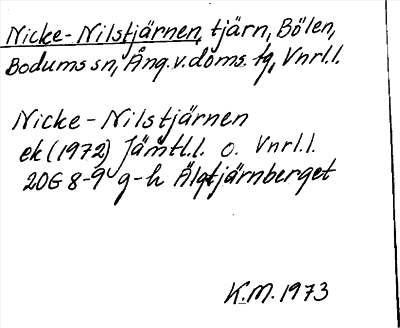 Nicke-Nilstjärnen, tjärn, Bölen,
Bodums sn, Ång.v.doms.tg, Vnrl.l.
Nicke-Nilstjärnen
ek (1972) Jämtl.l. o. Vnrl.l.
20G 8-9 g-h Älgtjärnberget
K.M. 1973